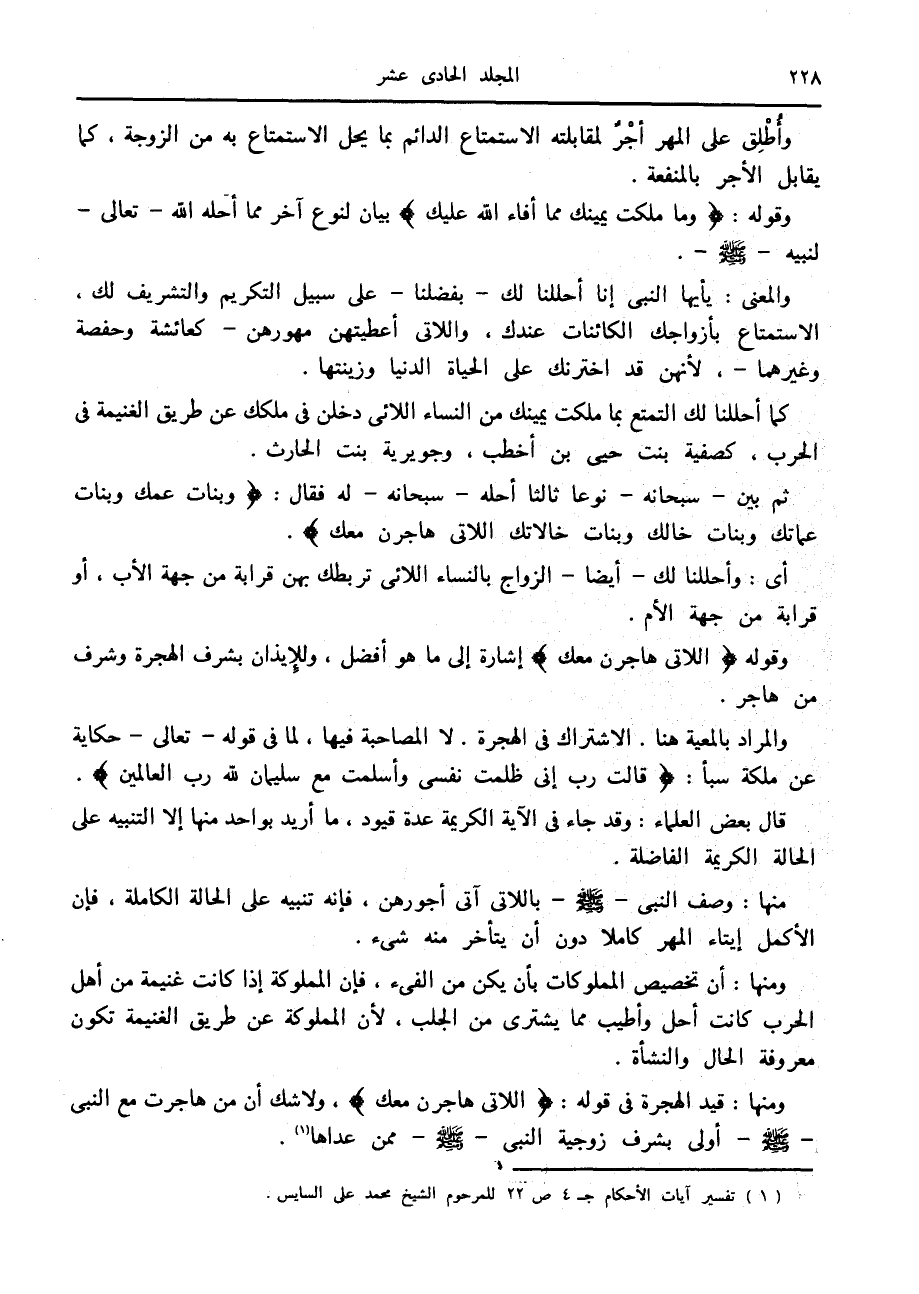 ٢٢٨ المجلد الحادى عشر
وأُطْلِق على المهر أجْرٌ لمقابلته الاستمتاع الدائم بما يحل الاستمتاع به من الزوجة ، كما
يقابل الأجر بالمنفعة .
وقوله : ﴿ وما ملكت يمينك مما أفاء الله عليك ﴾ بيان لنوع آخر مما أحله الله – تعالى –
لنبيه – ﷺ – .
والمعنى : يأيها النبى إنا أحللنا لك – بفضلنا – على سبيل التكريم والتشريف لك ،
الاستمتاع بأزواجك الكائنات عندك ، واللاتى أعطيتهن مهورهن – كعائشة وحفصة
وغيرهما – ، لأنهن قد اخترنك على الحياة الدنيا وزينتها .
كما أحللنا لك التمتع بما ملكت يمينك من النساء اللائى دخلن فى ملكك عن طريق الغنيمة فى
الحرب ، كصفية بنت حيى بن أخطب ، وجويرية بنت الحارث .
ثم بين – سبحانه – نوعا ثالثا أحله – سبحانه – له فقال : ﴿ وبنات عمك وبنات
عماتك وبنات خالك وبنات خالاتك اللاتى هاجرن معك ﴾ .
أى : وأحللنا لك – أيضا – الزواج بالنساء اللائى تربطك بهن قرابة من جهة الأب ، أو
قرابة من جهة الأم .
وقوله ﴿ اللاتى هاجرن معك ﴾ إشارة إلى ما هو أفضل ، وللإيذان بشرف الهجرة وشرف
من هاجر .
والمراد بالمعية هنا . الاشتراك فى الهجرة . لا المصاحبة فيها ، لما فى قوله – تعالى – حكاية
عن ملكة سبأ : ﴿ قالت رب إنى ظلمت نفسى وأسلمت مع سليمان لله رب العالمين ﴾ .
قال بعض العلماء : وقد جاء فى الآية الكريمة عدة قيود ، ما أريد بواحد منها إلا التنبيه على
الحالة الكريمة الفاضلة .
منها : وصف النبى – ﷺ – باللاتى آتى أجورهن ، فإنه تنبيه على الحالة الكاملة ، فإن
الأكمل إيتاء المهر كاملا دون أن يتأخر منه شىء .
ومنها : أن تخصيص المملوكات بأن يكن من الفىء ، فإن المملوكة إذا كانت غنيمة من أهل
الحرب كانت أحل وأطيب مما يشترى من الجلب ، لأن المملوكة عن طريق الغنيمة تكون
معروفة الحال والنشأة .
ومنها : قيد الهجرة فى قوله : ﴿ اللاتى هاجرن معك ﴾ ، ولاشك أن من هاجرت مع النبى
– ﷺ – أولى بشرف زوجية النبى – ﷺ – ممن عداها(١) .
( ١ ) تفسير آيات الأحكام جـ ٤ ص ٢٢ للمرحوم الشيخ محمد على السايس .